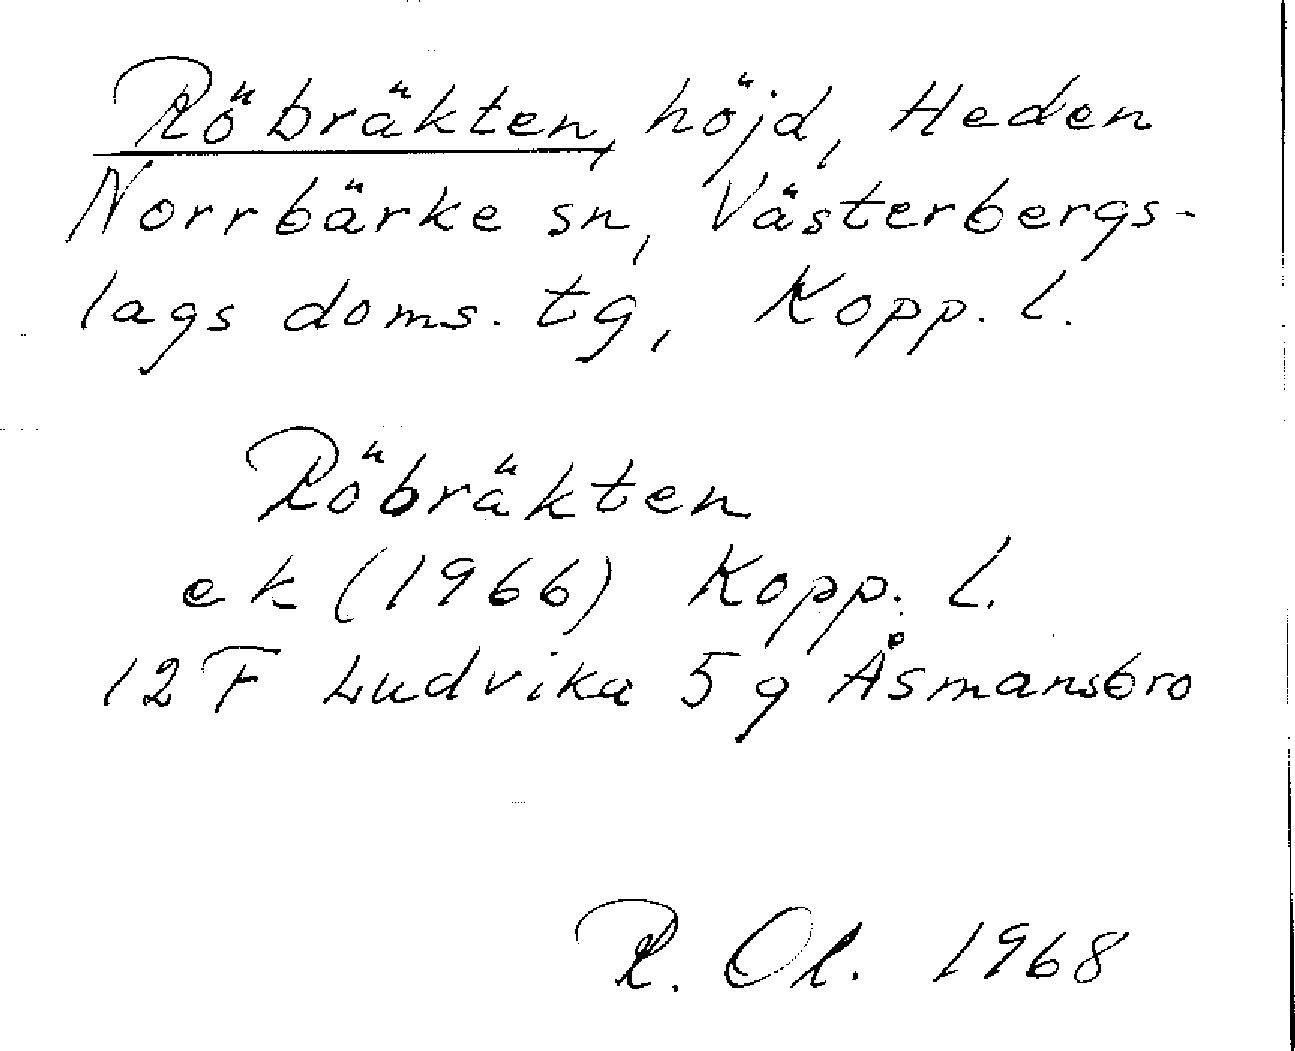 Röbräkten, höjd, Heden
Norrbärke sn, Västerbergs-
lags doms. tg, Kopp. l.
Röbräkten
ek (1966) Kopp. l.
12 F Ludvika 5 g Åsmansbro
R. Ol. 1968